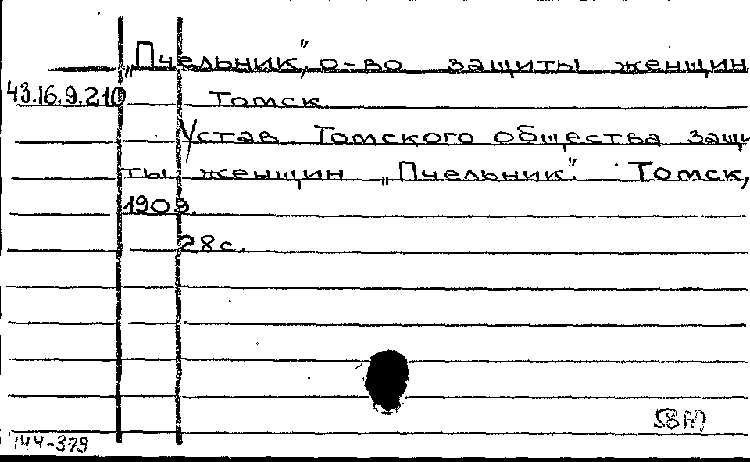 „Пчельник", о-во защиты женщин
43.16.9.210 Томск
Устав Томского общества защи
ты женщин „Пчельник". Томск,
1909.
28 с.
144-379